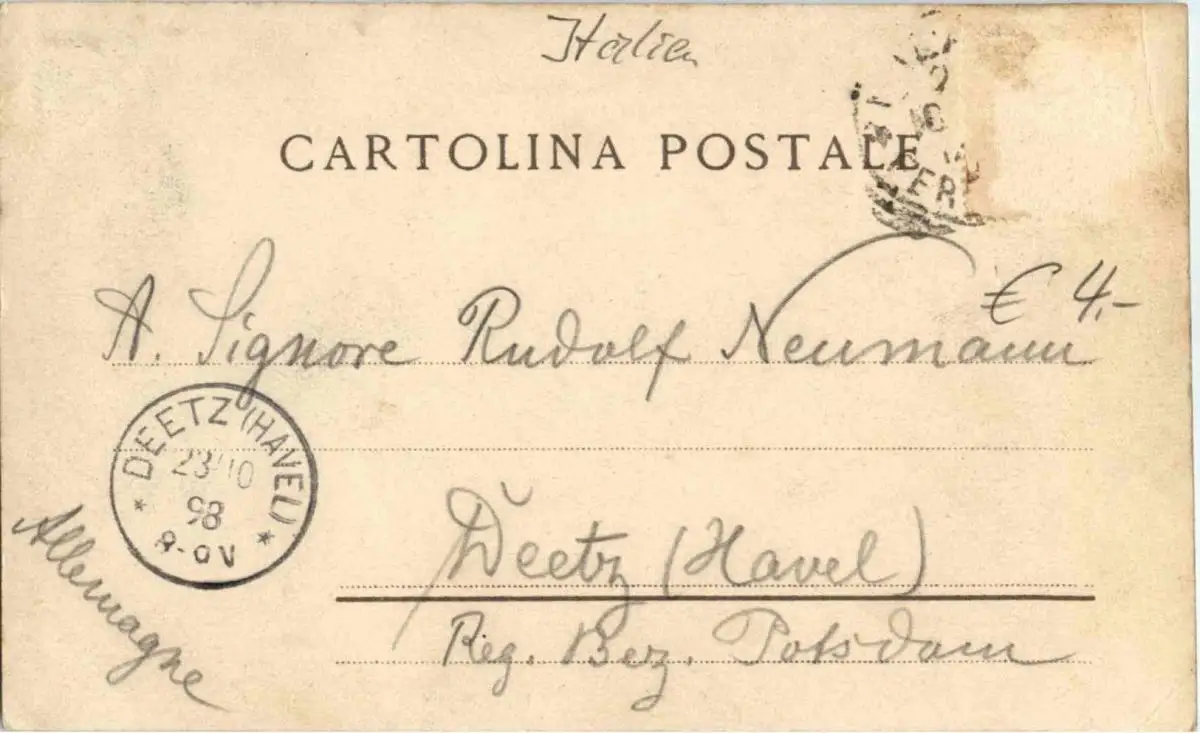 Italien
CARTOLINA POSTALE
10
ER
€ 4.-
A. Signore Rudolf Neumann
DEETZ (HAVEL)
23/10
98
8-9V
Deetz (Havel)
Allemagne
Reg. Bez. Potsdam